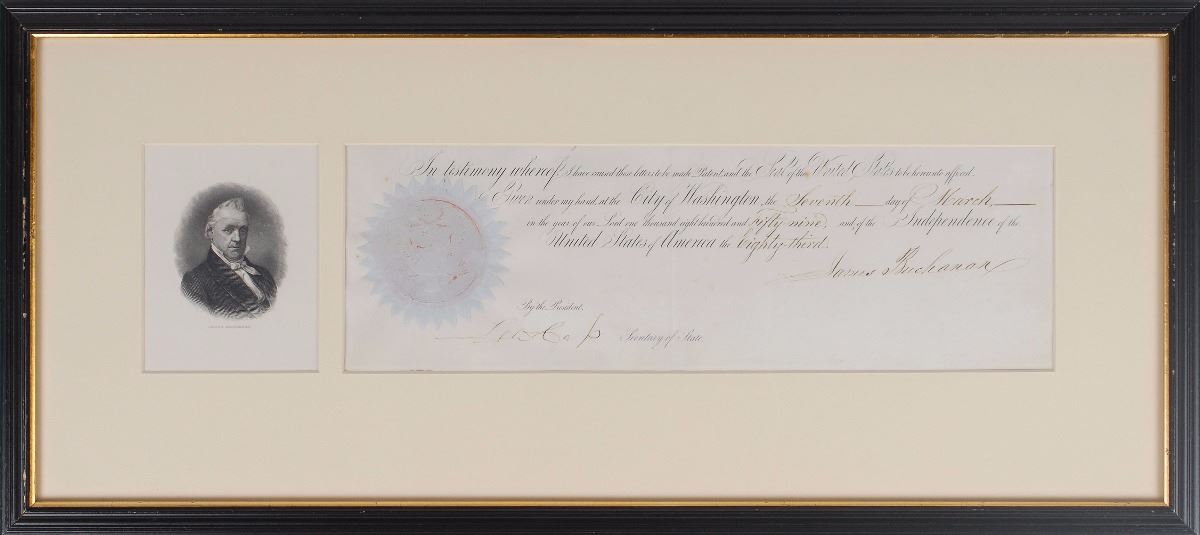 In testimony whereof, I have caused these letters to be made Patent, and the Seal of the United States to be hereunto affixed.
Given under my hand, at the City of Washington, the Seventh day of March,
in the year of our Lord one thousand eight hundred and fifty nine, and of the Independence of the
United States of America the Eighty-third.
James Buchanan
By the President.
Lew Cass Secretary of State.
JAMES BUCHANAN